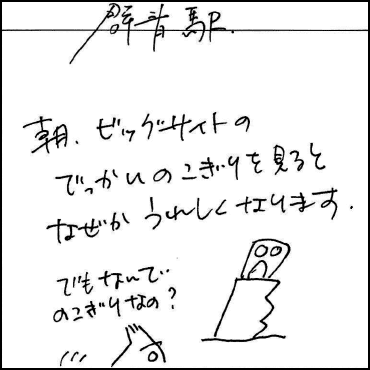 群青駅.
朝、ビッグサイトの
でっかいのこぎりを見ると
なぜかうれしくなります.
でもなんで‥
のこぎりなの?